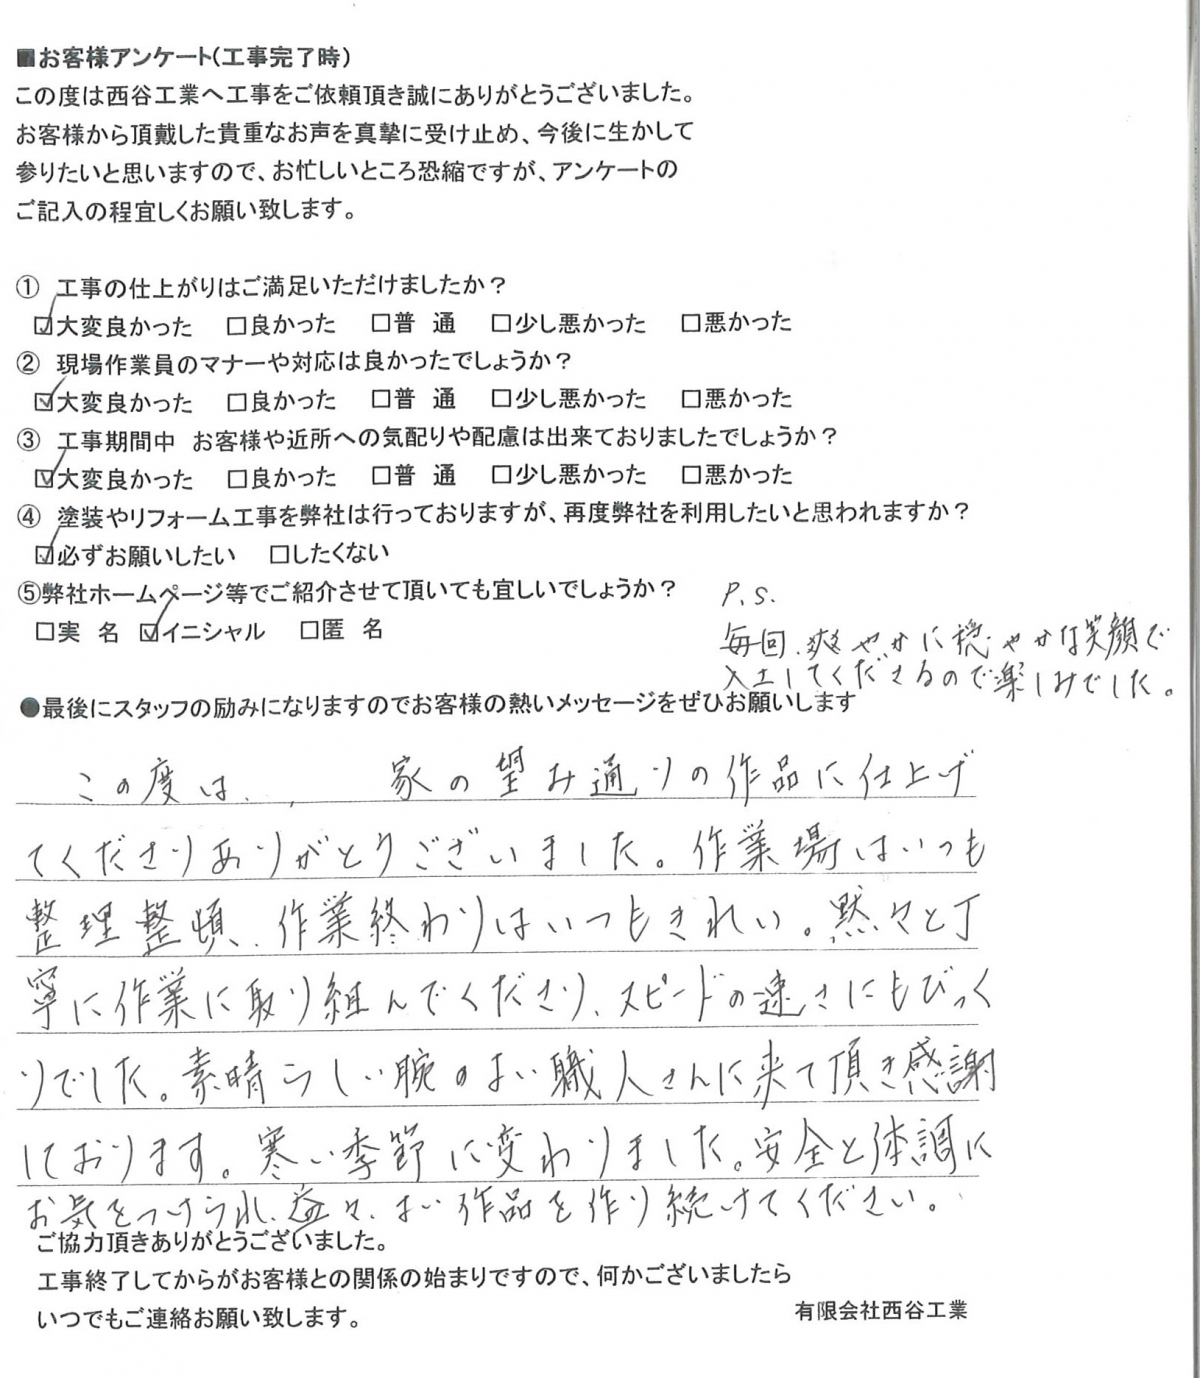 ■お客様アンケート(工事完了時)
この度は西谷工業へ工事をご依頼頂き誠にありがとうございました。
お客様から頂戴した貴重なお声を真摯に受け止め、今後に生かして
参りたいと思いますので、お忙しいところ恐縮ですが、アンケートの
ご記入の程宜しくお願い致します。
① 工事の仕上がりはご満足いただけましたか？
☑大変良かった □良かった □普 通 □少し悪かった □悪かった
② 現場作業員のマナーや対応は良かったでしょうか？
☑大変良かった □良かった □普 通 □少し悪かった □悪かった
③ 工事期間中 お客様や近所への気配りや配慮は出来ておりましたでしょうか？
☑大変良かった □良かった □普 通 □少し悪かった □悪かった
④ 塗装やリフォーム工事を弊社は行っておりますが、再度弊社を利用したいと思われますか？
☑必ずお願いしたい □したくない
⑤弊社ホームページ等でご紹介させて頂いても宜しいでしょうか？
□実 名 ☑イニシャル □匿 名
P.S.
毎回、爽やかに穏やかな笑顔で
入土してくださるので楽しみでした。
●最後にスタッフの励みになりますのでお客様の熱いメッセージをぜひお願いします
この度は、 家の望み通りの作品に仕上げ
てくださりありがとうございました。作業場はいつも
整理整頓、作業終わりはいつもきれい。黙々と丁
寧に作業に取り組んでくださり、スピードの速さにもびっく
りでした。素晴らしい腕のよい職人さんに来て頂き感謝
しております。寒い季節に変わりました。安全と体調に
お気をつけられ、益々、よい作品を作り続けてください。
ご協力頂きありがとうございました。
工事終了してからがお客様との関係の始まりですので、何かございましたら
いつでもご連絡お願い致します。
有限会社西谷工業